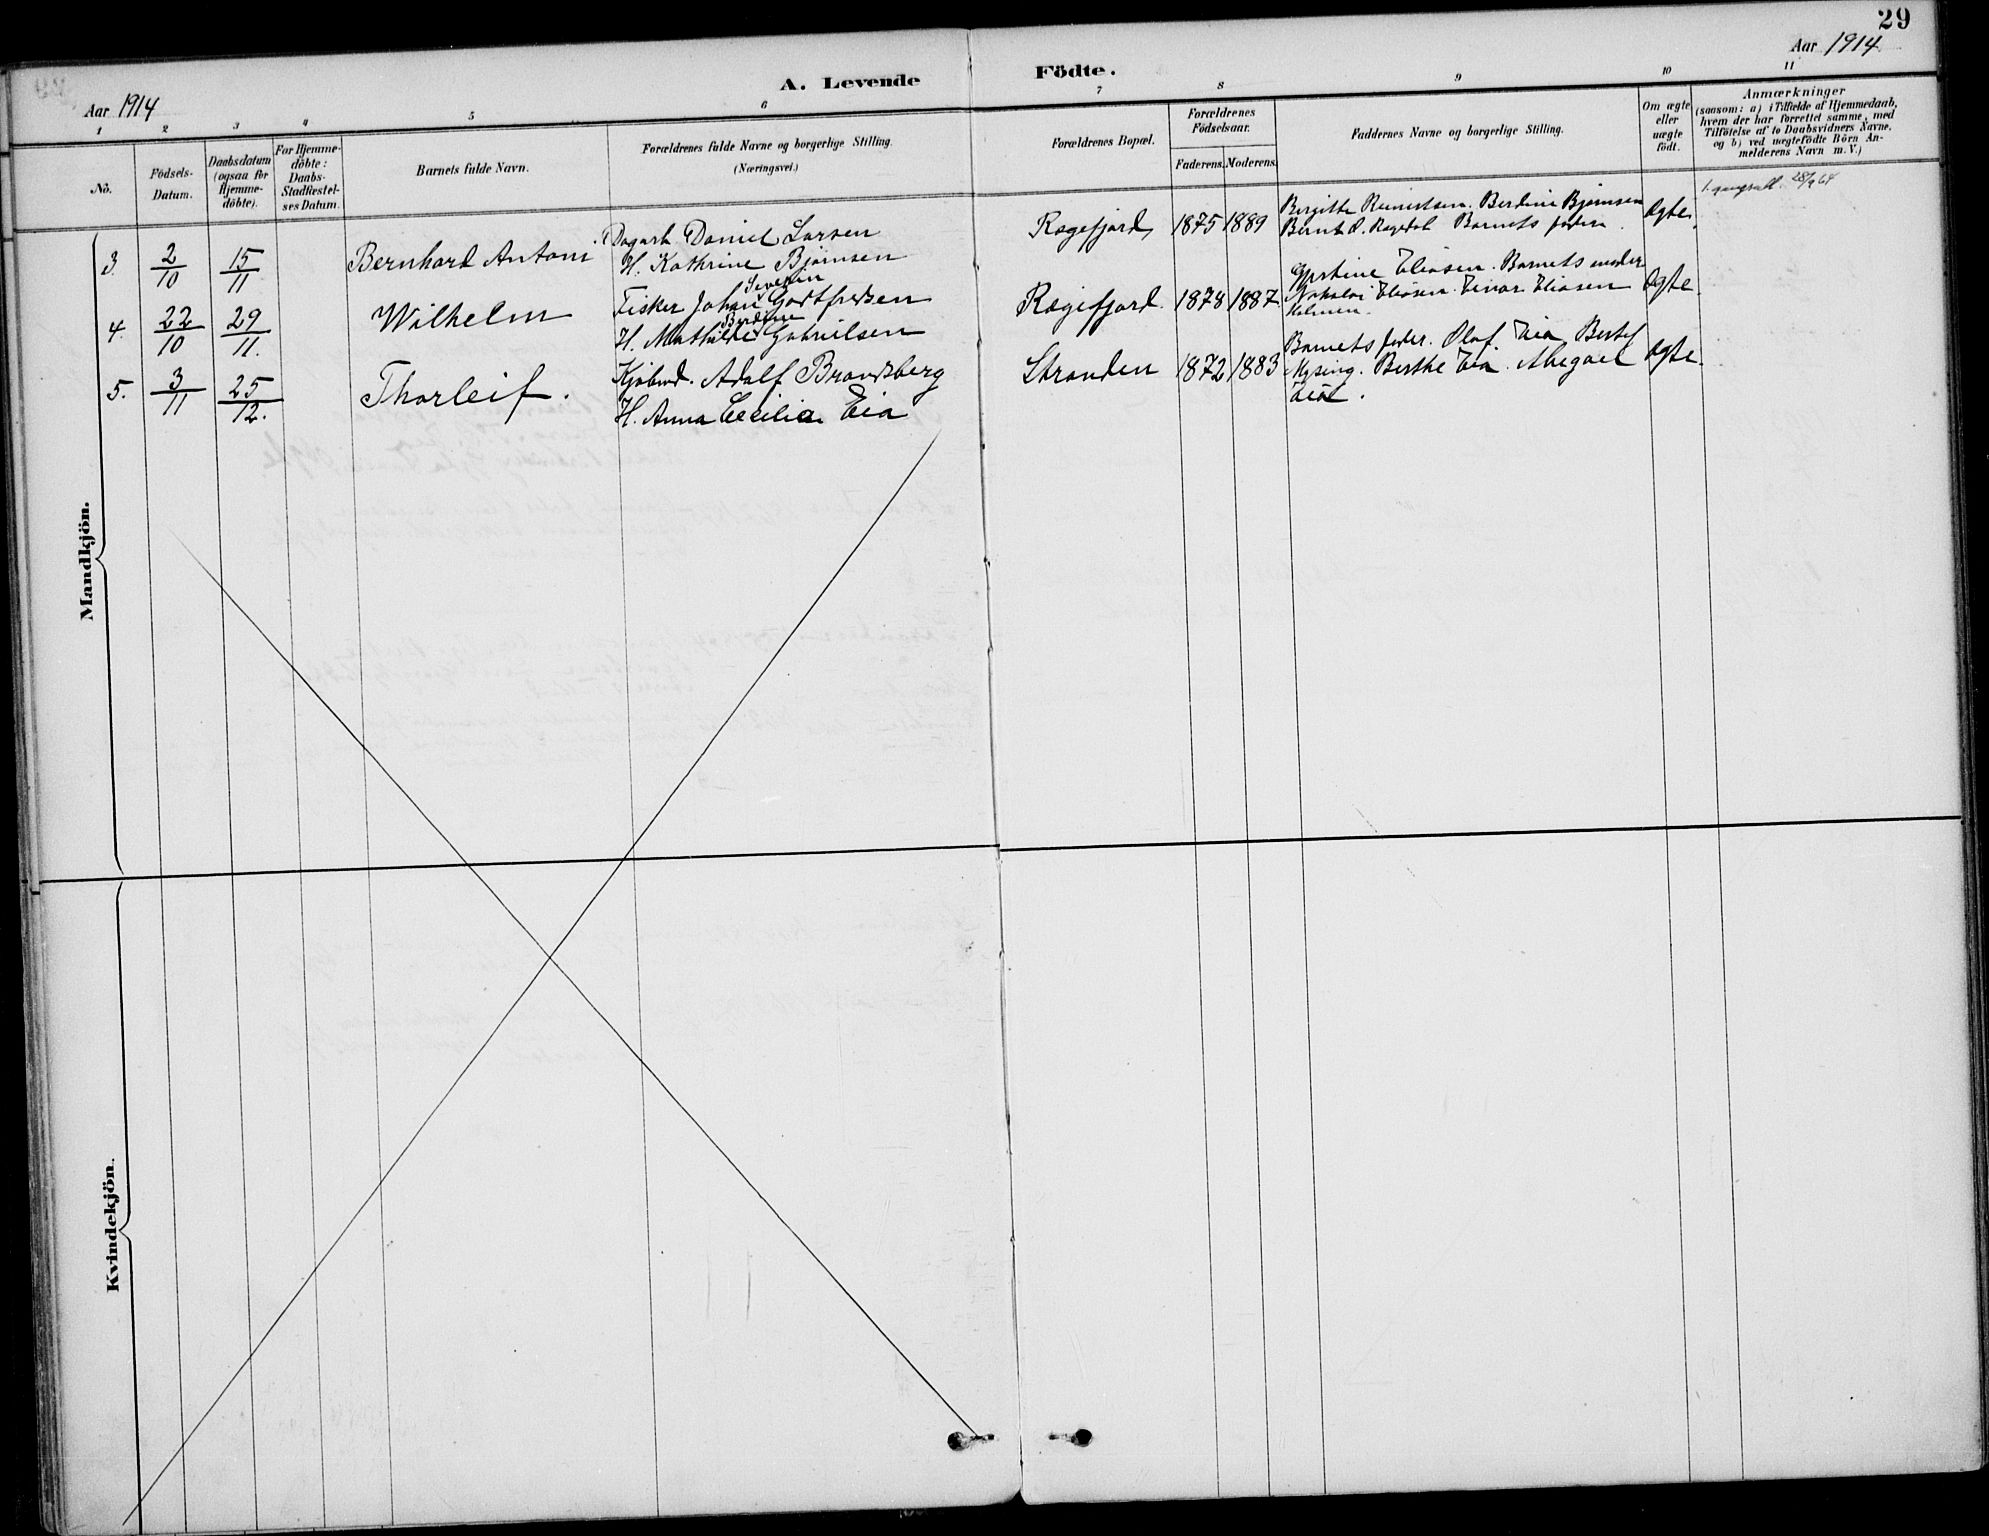 29
Aar 1914
A. Levende Födte.
Aar 1914
1 2 3 4 5 6 7 8 9 10 11
No.
Födsels-Datum.
Daabsdatum (ogsaa for Hjemme-döbte).
For Hjemme-döbte: Daabs-Stadfæstel-ses Datum.
Barnets fulde Navn.
Forældrenes fulde Navne og borgerlige Stilling.
(Næringsvei.)
Forældrenes Bopæl.
Forældrenes Födselsaar.
Faderens. Moderens.
Faddernes Navne og borgerlige Stilling.
Om ægte eller uægte födt.
Anmærkninger
(saasom: a) i Tilfælde af Hjemmedaab,
hvem der har forrettet samme, med
Tilföielse af to Daabsvidners Navne,
og b) ved uægtefödte Börn An-
melderens Navn m. V.)
Mandkjön.
3. 2/10 15/11 Bernhard Antoni.
Dagarb. Daniel Larsen
H. Kathrine Bjørnsen
Rægefjord, 1875 1889
Birgitte Reinertsen. Berdine Bjørnsen
Bernt O. Rægdal Barnets fader.
Ægte.
28/9 64
4. 22/10 29/11. Wilhelm
Fisker Johan Severin Godtfredsen
H. Mathilde Berdine Gabrielsen
Rægefjord. 1878 1887.
Eliasen. Barnets moder
Nikolai Eliasen. Einar Eliasen
Ægte.
5. 3/11 25/12. Thorleif.
Kjøbmd. Adolf Brandsberg
H. Anna Cecilia Eia
Stranden 1872 1883
Barnets fader. Olaf Eia Bertel
Mysing. Berthe Eia. Abegael
Eia.
Ægte.
Kvindekjön.